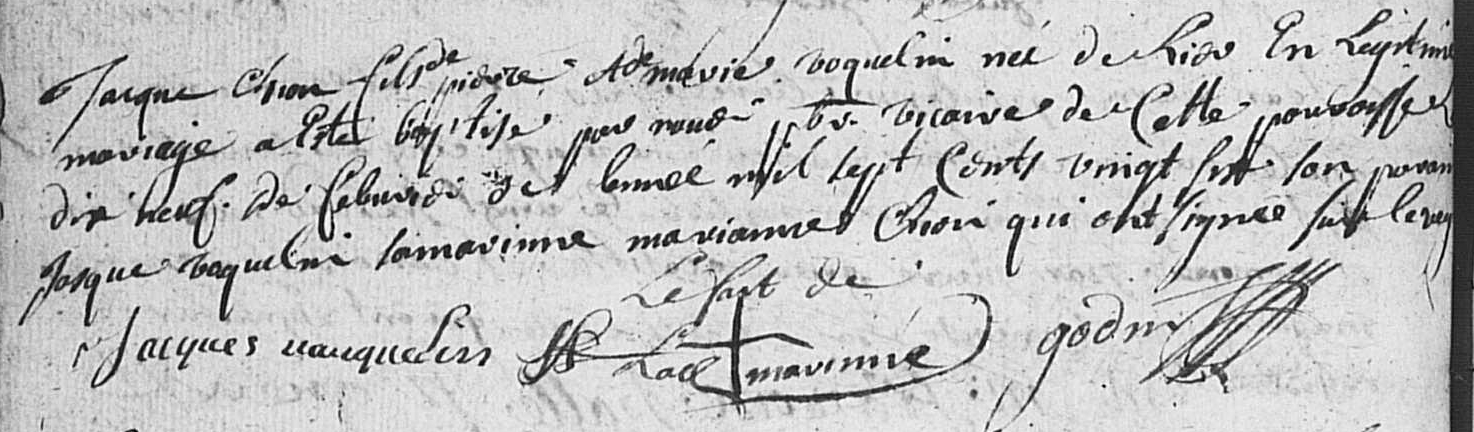 Jacque Chion fils de pierre & de marie voquelin né de hier En Legitime
mariage a Esté baptisé par nous pbr vicaire de Cette parroisse
dix neuf de febvrié de lennée mil sept Cents vingt sept son parain
Jasque voquelin samarinne marianne Chion qui ont signee sur le reg
Le fait de
Jacques vauquelin Lad marinne godin